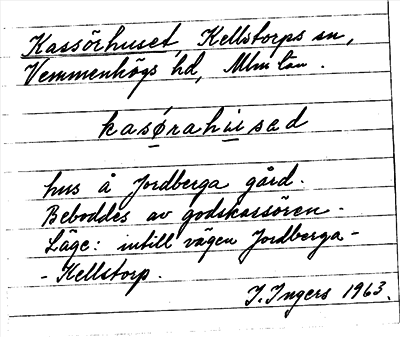 Kassörhuset, Kellstorps sn,
Vemmenhögs hd, Mlm län.
kasǿrahúsəd
hus å Jordberga gård.
Beboddes av godskassören.
Läge: intill vägen Jordberga-
-Kellstorp.
I. Ingers 1963.